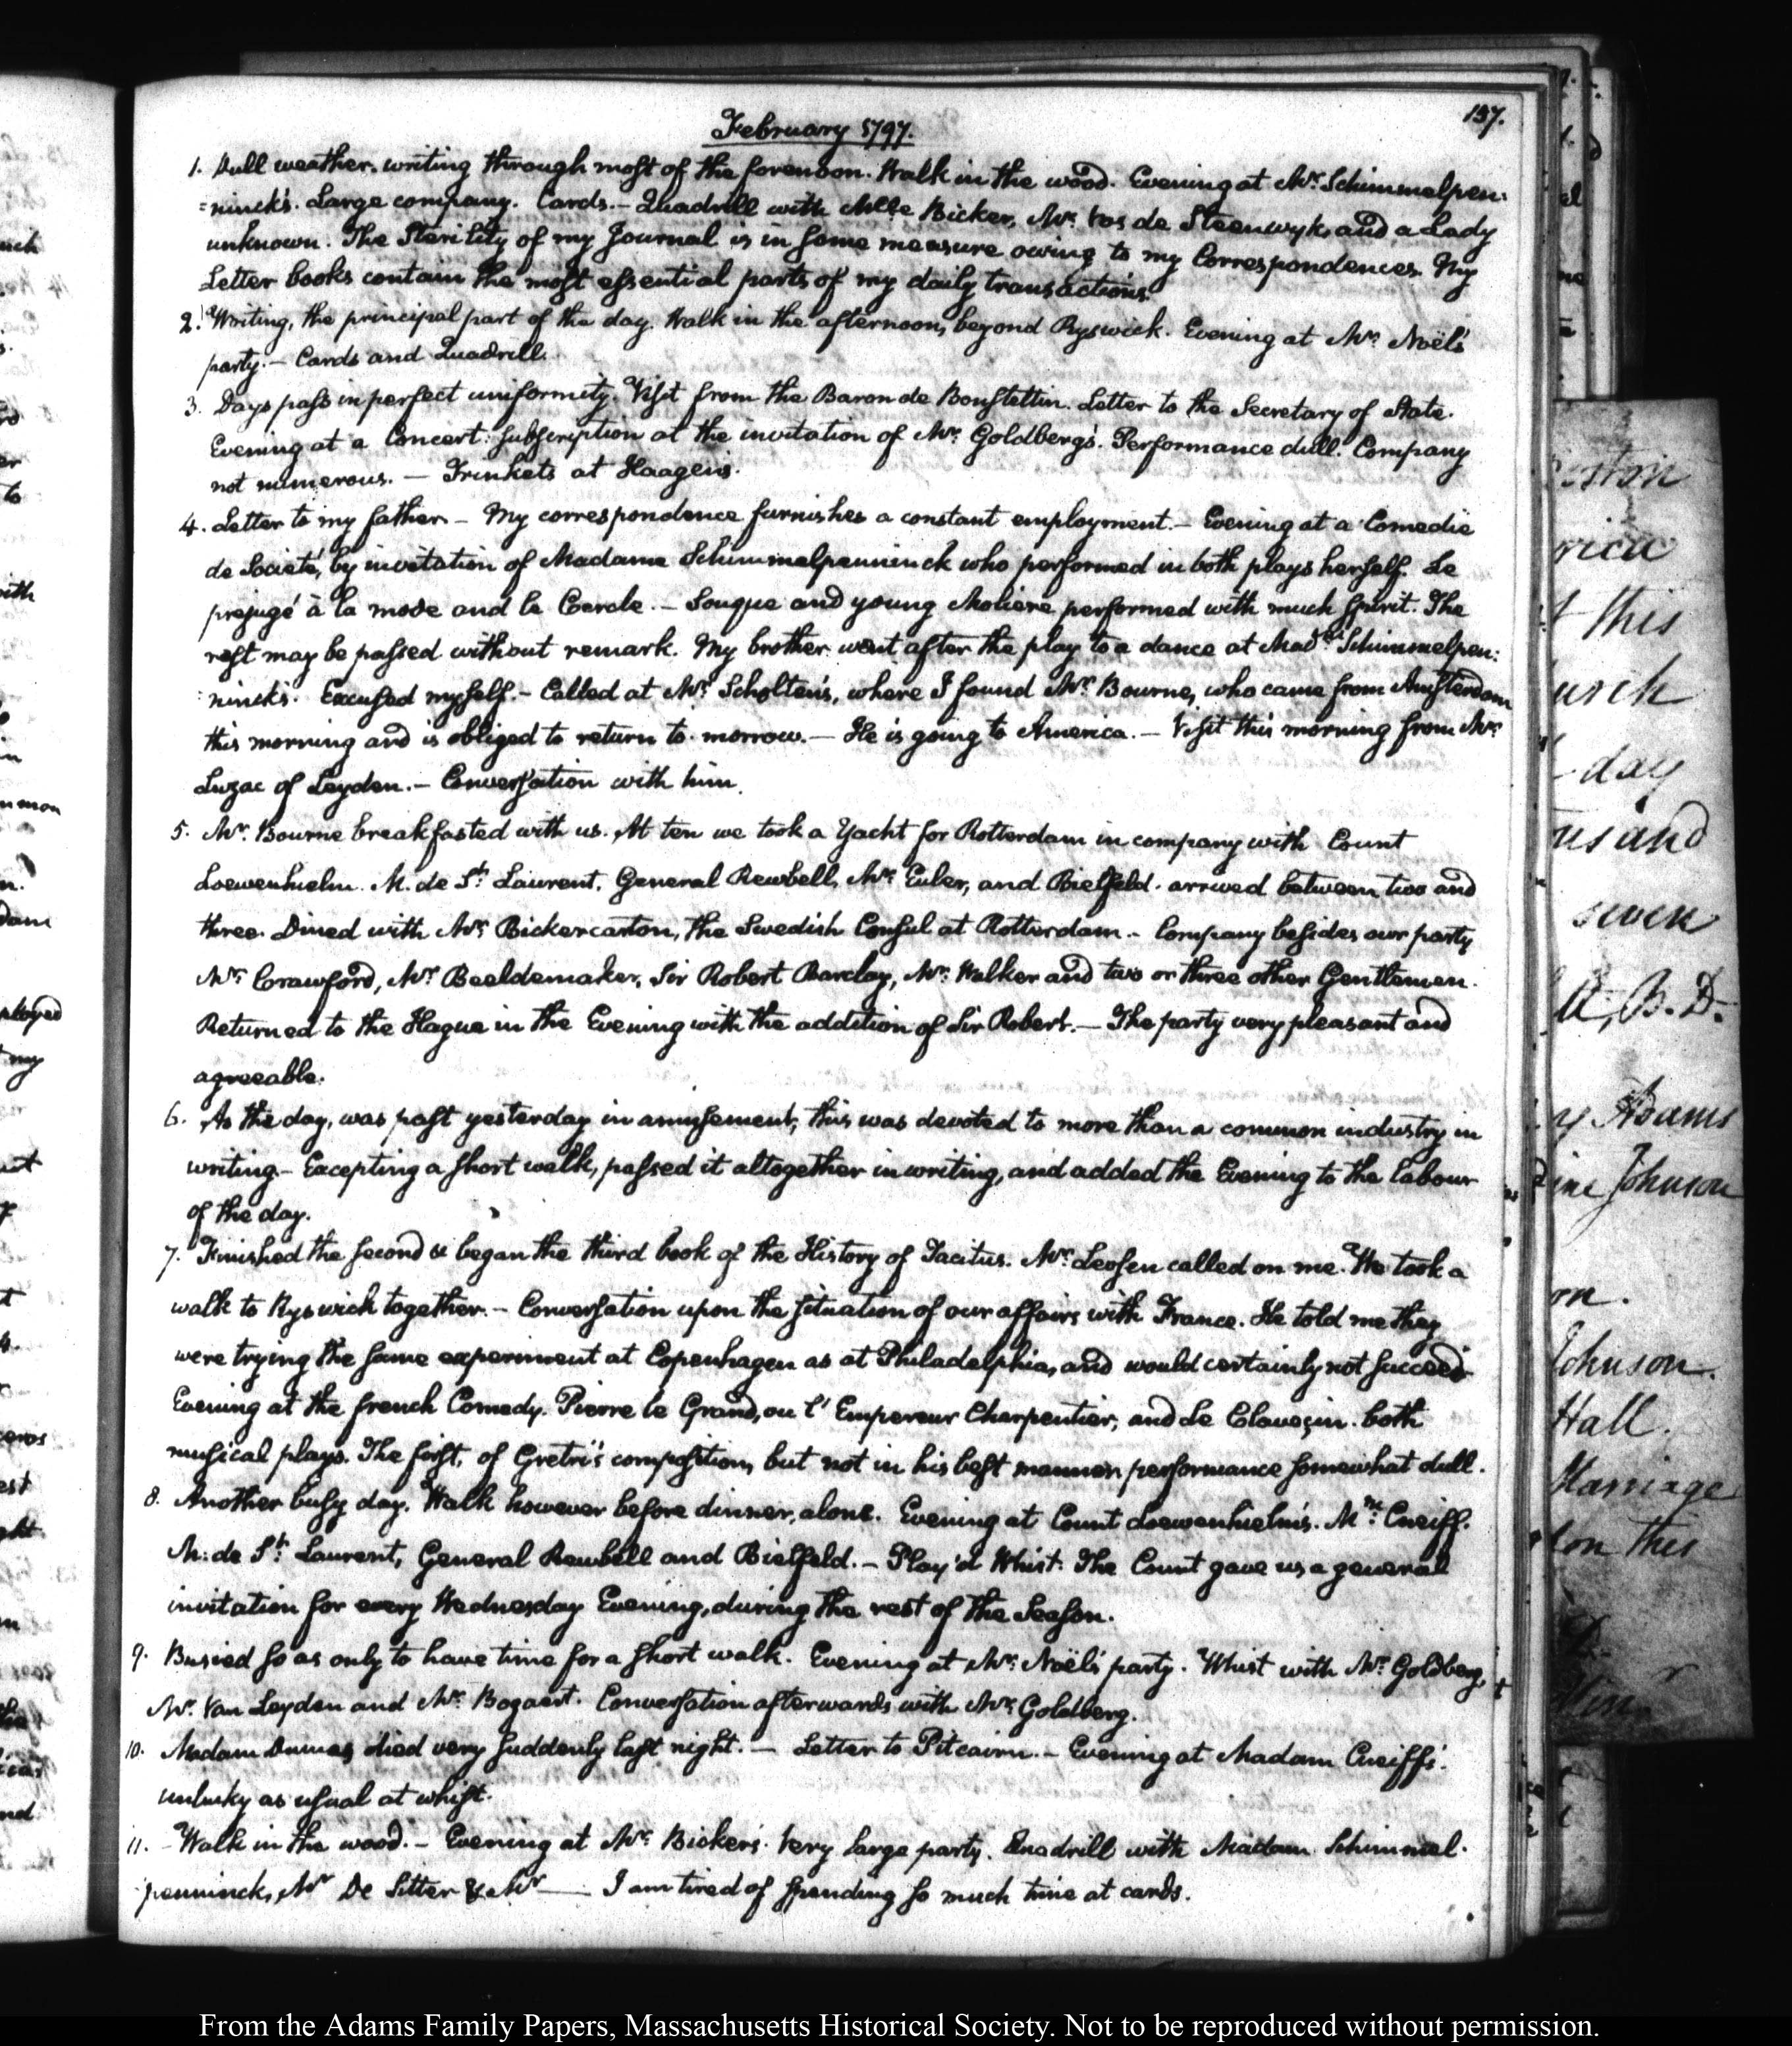 137.
February 1797.
1. Dull weather. writing through most of the forenoon. Walk in the wood. Evening at Mr. Schimmelpen:
=ninck's. Large company. Cards.— Quadrill with Mlle Bicker, Mr. Vos de Steenwyk, and a Lady
unknown. The Sterility of my Journal is in some measure owing to my Correspondences. My
Letter books contain the most essential parts of my daily transactions.
2. Writing, the principal part of the day. Walk in the afternoon, beyond Ryswick. Evening at Mr. Noël's
party.— Cards and Quadrill.
3. Days pass in perfect uniformity. Visit from the Baron de Boustettin. Letter to the Secretary of State.
Evening at a Concert: subscription at the invitation of Mr. Goldberg's. Performance dull. Company
not numerous. — Trinkets at Haagen's.
4. Letter to my father.— My correspondence furnishes a constant employment.— Evening at a Comedie
de Societé, by invitation of Madame Schimmelpenninck who performed in both plays herself. Le
prejugé à la mode and le Cercle.— Souque and young Moliere performed with much spirit. The
rest may be passed without remark. My brother went after the play to a dance at Made. Schimmelpen:
:ninck's. Excused myself.— Called at Mr. Scholten's, where I found Mr. Bourne, who came from Amsterdam
this morning and is obliged to return to-morrow.— He is going to America.— Visit this morning from Mr.
Luzac of Leyden.— Conversation with him.
5. Mr. Bourne breakfasted with us. At ten we took a Yacht for Rotterdam in company with Count
Loewenhielm. M. de St. Laurent, General Rewbell, Mr. Euler, and Bielfeld. arrived between two and
three. Dined with Mr. Bickercaston, the Swedish Consul at Rotterdam.— Company besides our party
Mr. Crawford, Mr. Beeldemaker, Sir Robert Barclay, Mr. Walker and two or three other Gentlemen.
Returned to the Hague in the Evening with the addition of Sir Robert.— The party very pleasant and
agreeable.
6. As the day, was past yesterday in amusement, this was devoted to more than a common industry in
writing— Excepting a short walk, passed it altogether in writing, and added the Evening to the labour
of the day.
7. Finished the second & began the third book of the History of Tacitus. Mr. Levsen called on me. We took a
walk to Ryswick together.— Conversation upon the situation of our affairs with France. He told me they
were trying the same experiment at Copenhagen as at Philadelphia, and would certainly not succeed.
Evening at the french Comedy. Pierre le Grand, ou l'Empereur Charpentier, and Le Claveçin. both
musical plays. The first, of Gretri's composition, but not in his best manner. performance somewhat dull.
8. Another busy day. Walk however before dinner, alone. Evening at Count Loewenhielm's. Me. Cneiff.
M: de St. Laurent, General Rewbell and Bielfeld.— Play'd Whist. The Count gave us a general
invitation for every Wednesday Evening, during the rest of the Season.
9. Busied so as only to have time for a short walk. Evening at Mr. Noël's party. Whist with Mr. Goldberg,
Mr. Van Leyden and Mr. Bogaert. Conversation afterwards with Mr. Goldberg.
10. Madam Dumas died very suddenly last night.— Letter to Pitcairn.— Evening at Madam Cneiff's.
unlucky as usual at whist.
11. — Walk in the wood.— Evening at Mr. Bicker's. Very large party. Quadrill with Madam Schimmel.
penninck, Mr De Sitter & Mr — I am tired of spending so much time at cards.
this
day
us and
seven
B. D.
Adams
Johnson
Johnson.
Hall.
Marriage
on this
From the Adams Family Papers, Massachusetts Historical Society. Not to be reproduced without permission.